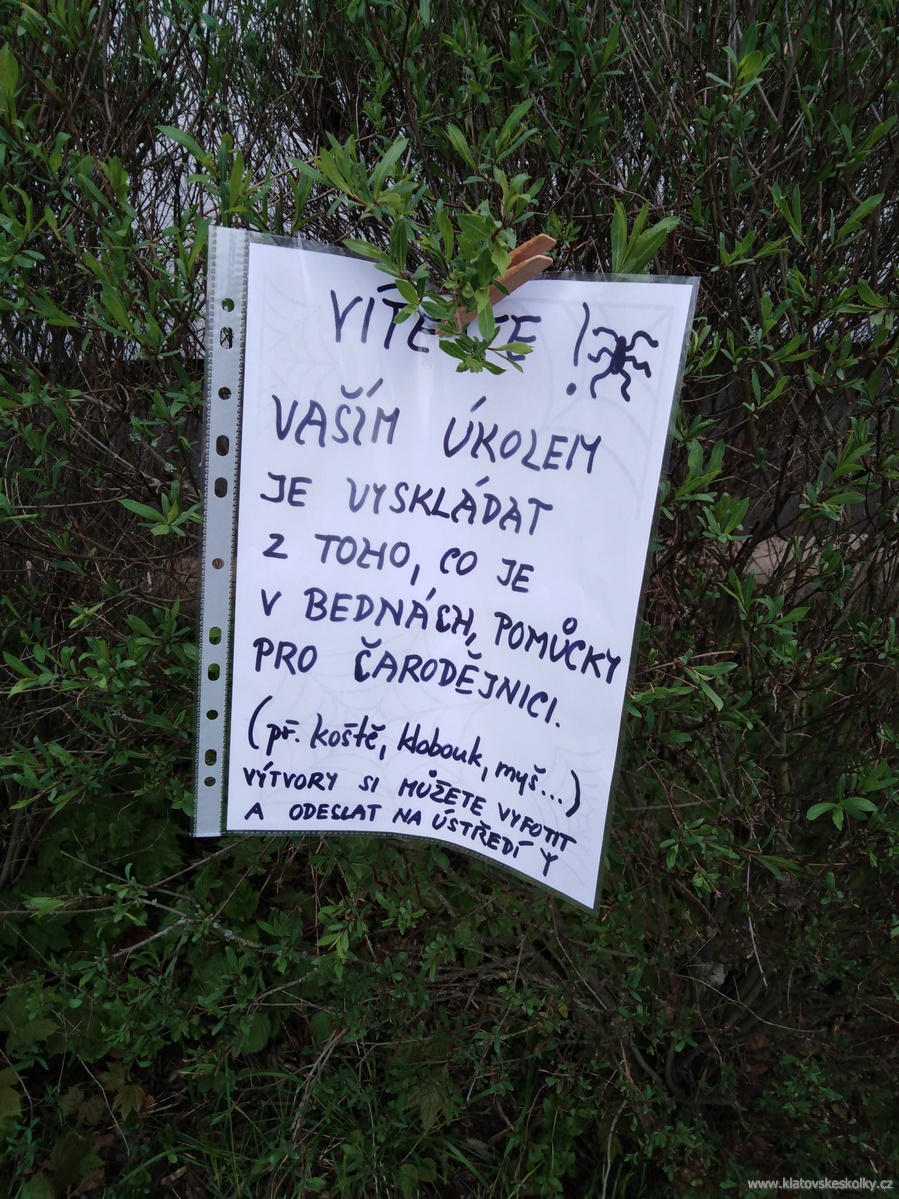 VÍTEJTE !
VAŠÍM ÚKOLEM
JE VYSKLÁDAT
Z TOHO, CO JE
V BEDNÁCH, POMŮCKY
PRO ČARODĚJNICI.
(př. koště, klobouk, myš...)
VÝTVORY SI MŮŽETE VYFOTIT
A ODESLAT NA ÚSTŘEDÍ Y
www.klatovskeskolky.cz